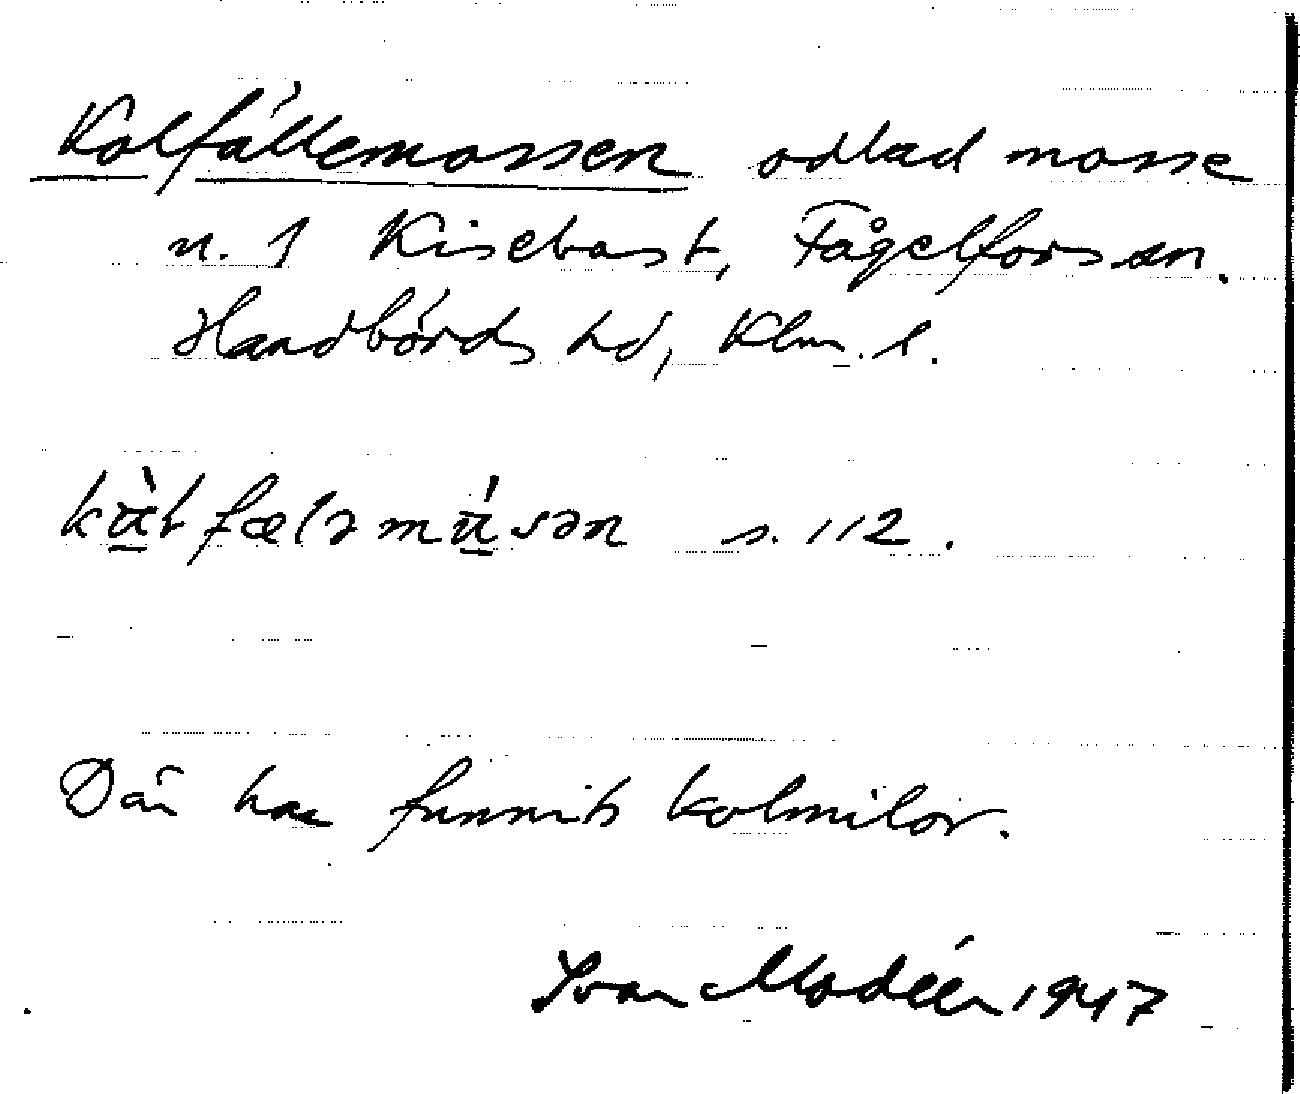 Kolfällemossen odlad mosse
n. 1 Kisebast, Fågelfors sn.
Handbörds hd, Klm. l.
s. 112.
Där har funnits kolmilor.
Ivar Modéer 1947